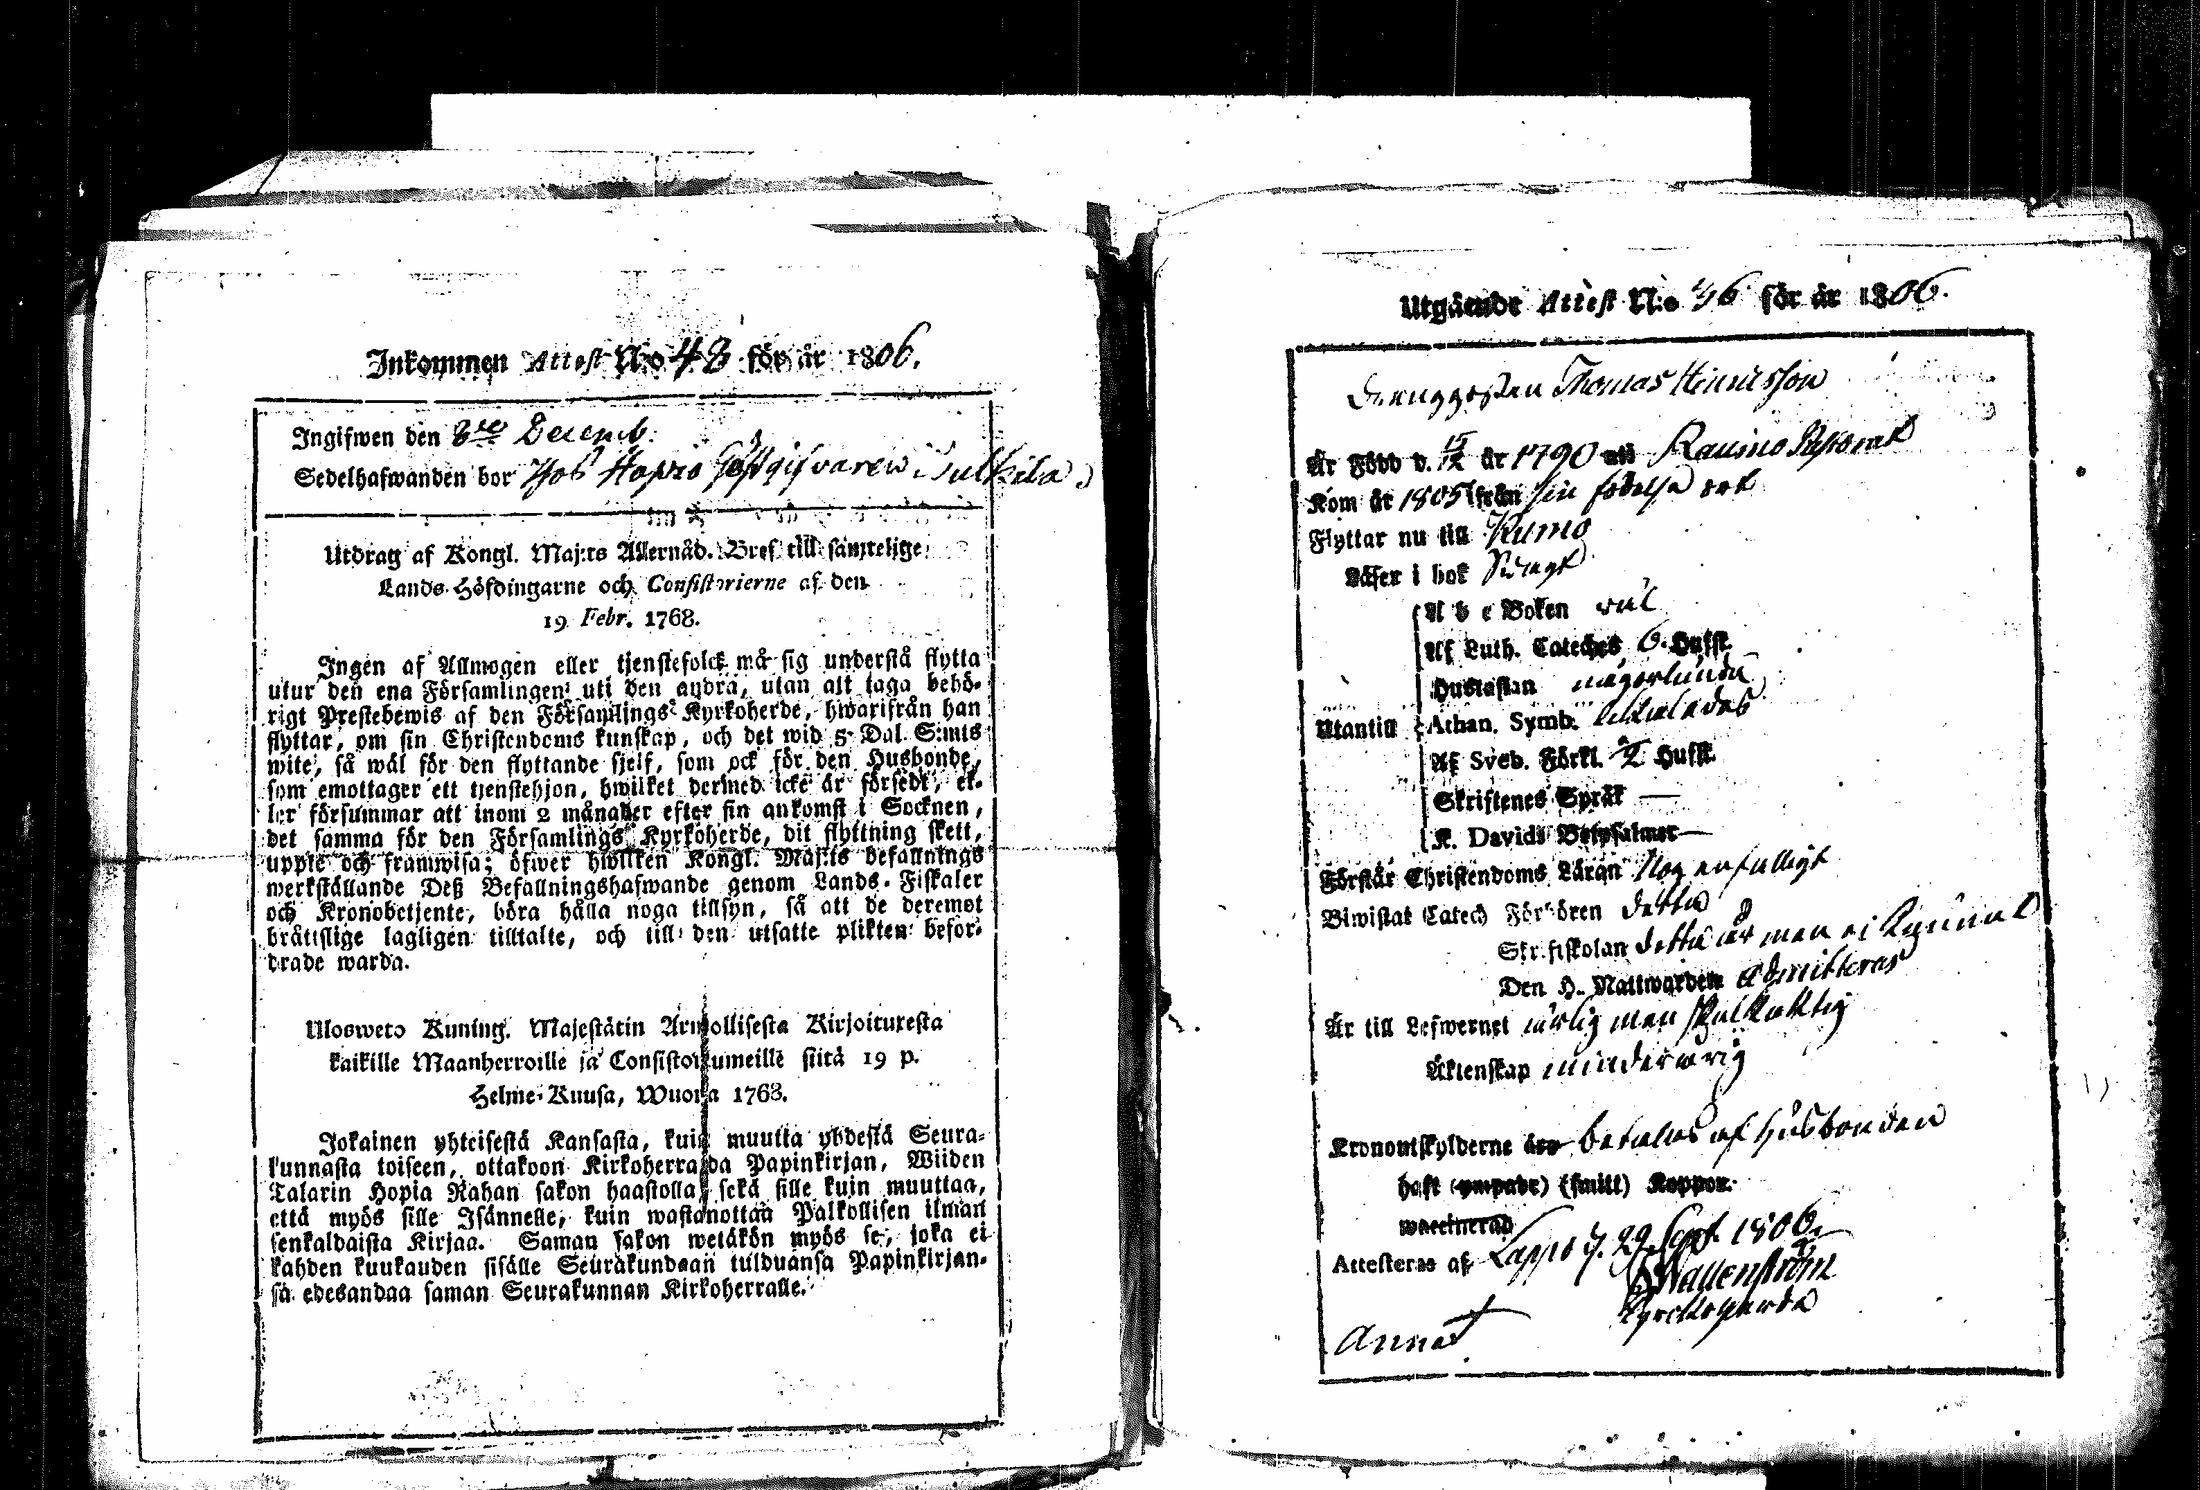 Inkommen Attest N:o 48 för år 1806.
Ingifwen den 8de Decemb.
Sedelhafwanden bor hos Hapio
Utdrag af Kongl. Maj:ts Allernåd. Bref till samtelige
Lands-Höfdingarne och Consistorierne af den
19 Febr. 1768.
Ingen af Allmogen eller tjenstefolck må sig understå flytta
utur den ena Församlingen uti den andra, utan att taga behö-
rigt Prestebewis af den Församlings Kyrkoherde, hwarifrån han
flyttar, om sin Christendoms kunskap, och det wid 5 Dal. S:mts
wite, så wäl för den flyttande sjelf, som ock för den Husbonde,
som emottager ett tjenstehjon, hwilket dermed icke är försedt, el-
ler försummar att inom 2 månader efter sin ankomst i Socknen,
det samma för den Församlings Kyrkoherde, dit flyttning skett,
uppte och framwisa; öfwer hwilken Kongl. Maj:ts befallnings
werkställande Deß Befallningshafwande genom Lands-Fiskaler
och Kronobetjente, böra hålla noga tillsyn, så att de deremot
bråttslige lagligen tilltalte, och till den utsatte plikten befor-
drade warda.
Ulosweto Kuning. Majestätin Armollisesta Kirjoituresta
kaikille Maanherroille ja Consistoriumeille siitä 19 p.
Helme-Kuusa, Wuonna 1768.
Jokainen yhteisestä Kansasta, kuin muutta yhdestä Seura-
kunnasta toiseen, ottakoon Kirkoherralda Papinkirjan, Wiiden
Talarin Hopia Rahan sakon haastolla, sekä sille kuin muuttaa,
että myös sille Isännelle, kuin wastanottaa Palkollisen ilman
senkaldaista Kirjaa. Saman sakon wetäkön myös se, joka ei
kahden kuukauden sisälle Seurakundaan tulduansa Papinkirjan-
sa edesandaa saman Seurakunnan Kirkoherralle.
Utgående Attest N:o 46 för år 1806.
Drenggossen Thomas Henricsson
Är Född d. 15/12 år 1790 uti Raumo Pastorat
Kom år 1805 från sin födelse ort
Flyttar nu till Kumo
Läser i bok Swagt
A b c Boken wäl
Af Luth. Cateches 6. Hufst.
Hustaflan någorlunda
Utantill Athan. Symb.
Af Sveb. Förkl. 2 Hufst.
Skriftenes Språk —
K. Davids Botpsalmer —
Förstår Christendoms Läran Nog enfalligt
Biwistat Catech Förhören detta
Skriftskolan detta år men ei kunnat
Den H. Nattwarden admitteras
Är till Lefwernet ärlig men skalkaktig
Äktenskap minderårig
Kronoutskylderne äro betalas af Husbonden
haft (ympade) (smitt) Koppor.
waccinerad
Attesteras af Lappo d. 29 Sept. 1806.
Wallenström
Kyrckoherde
Annat